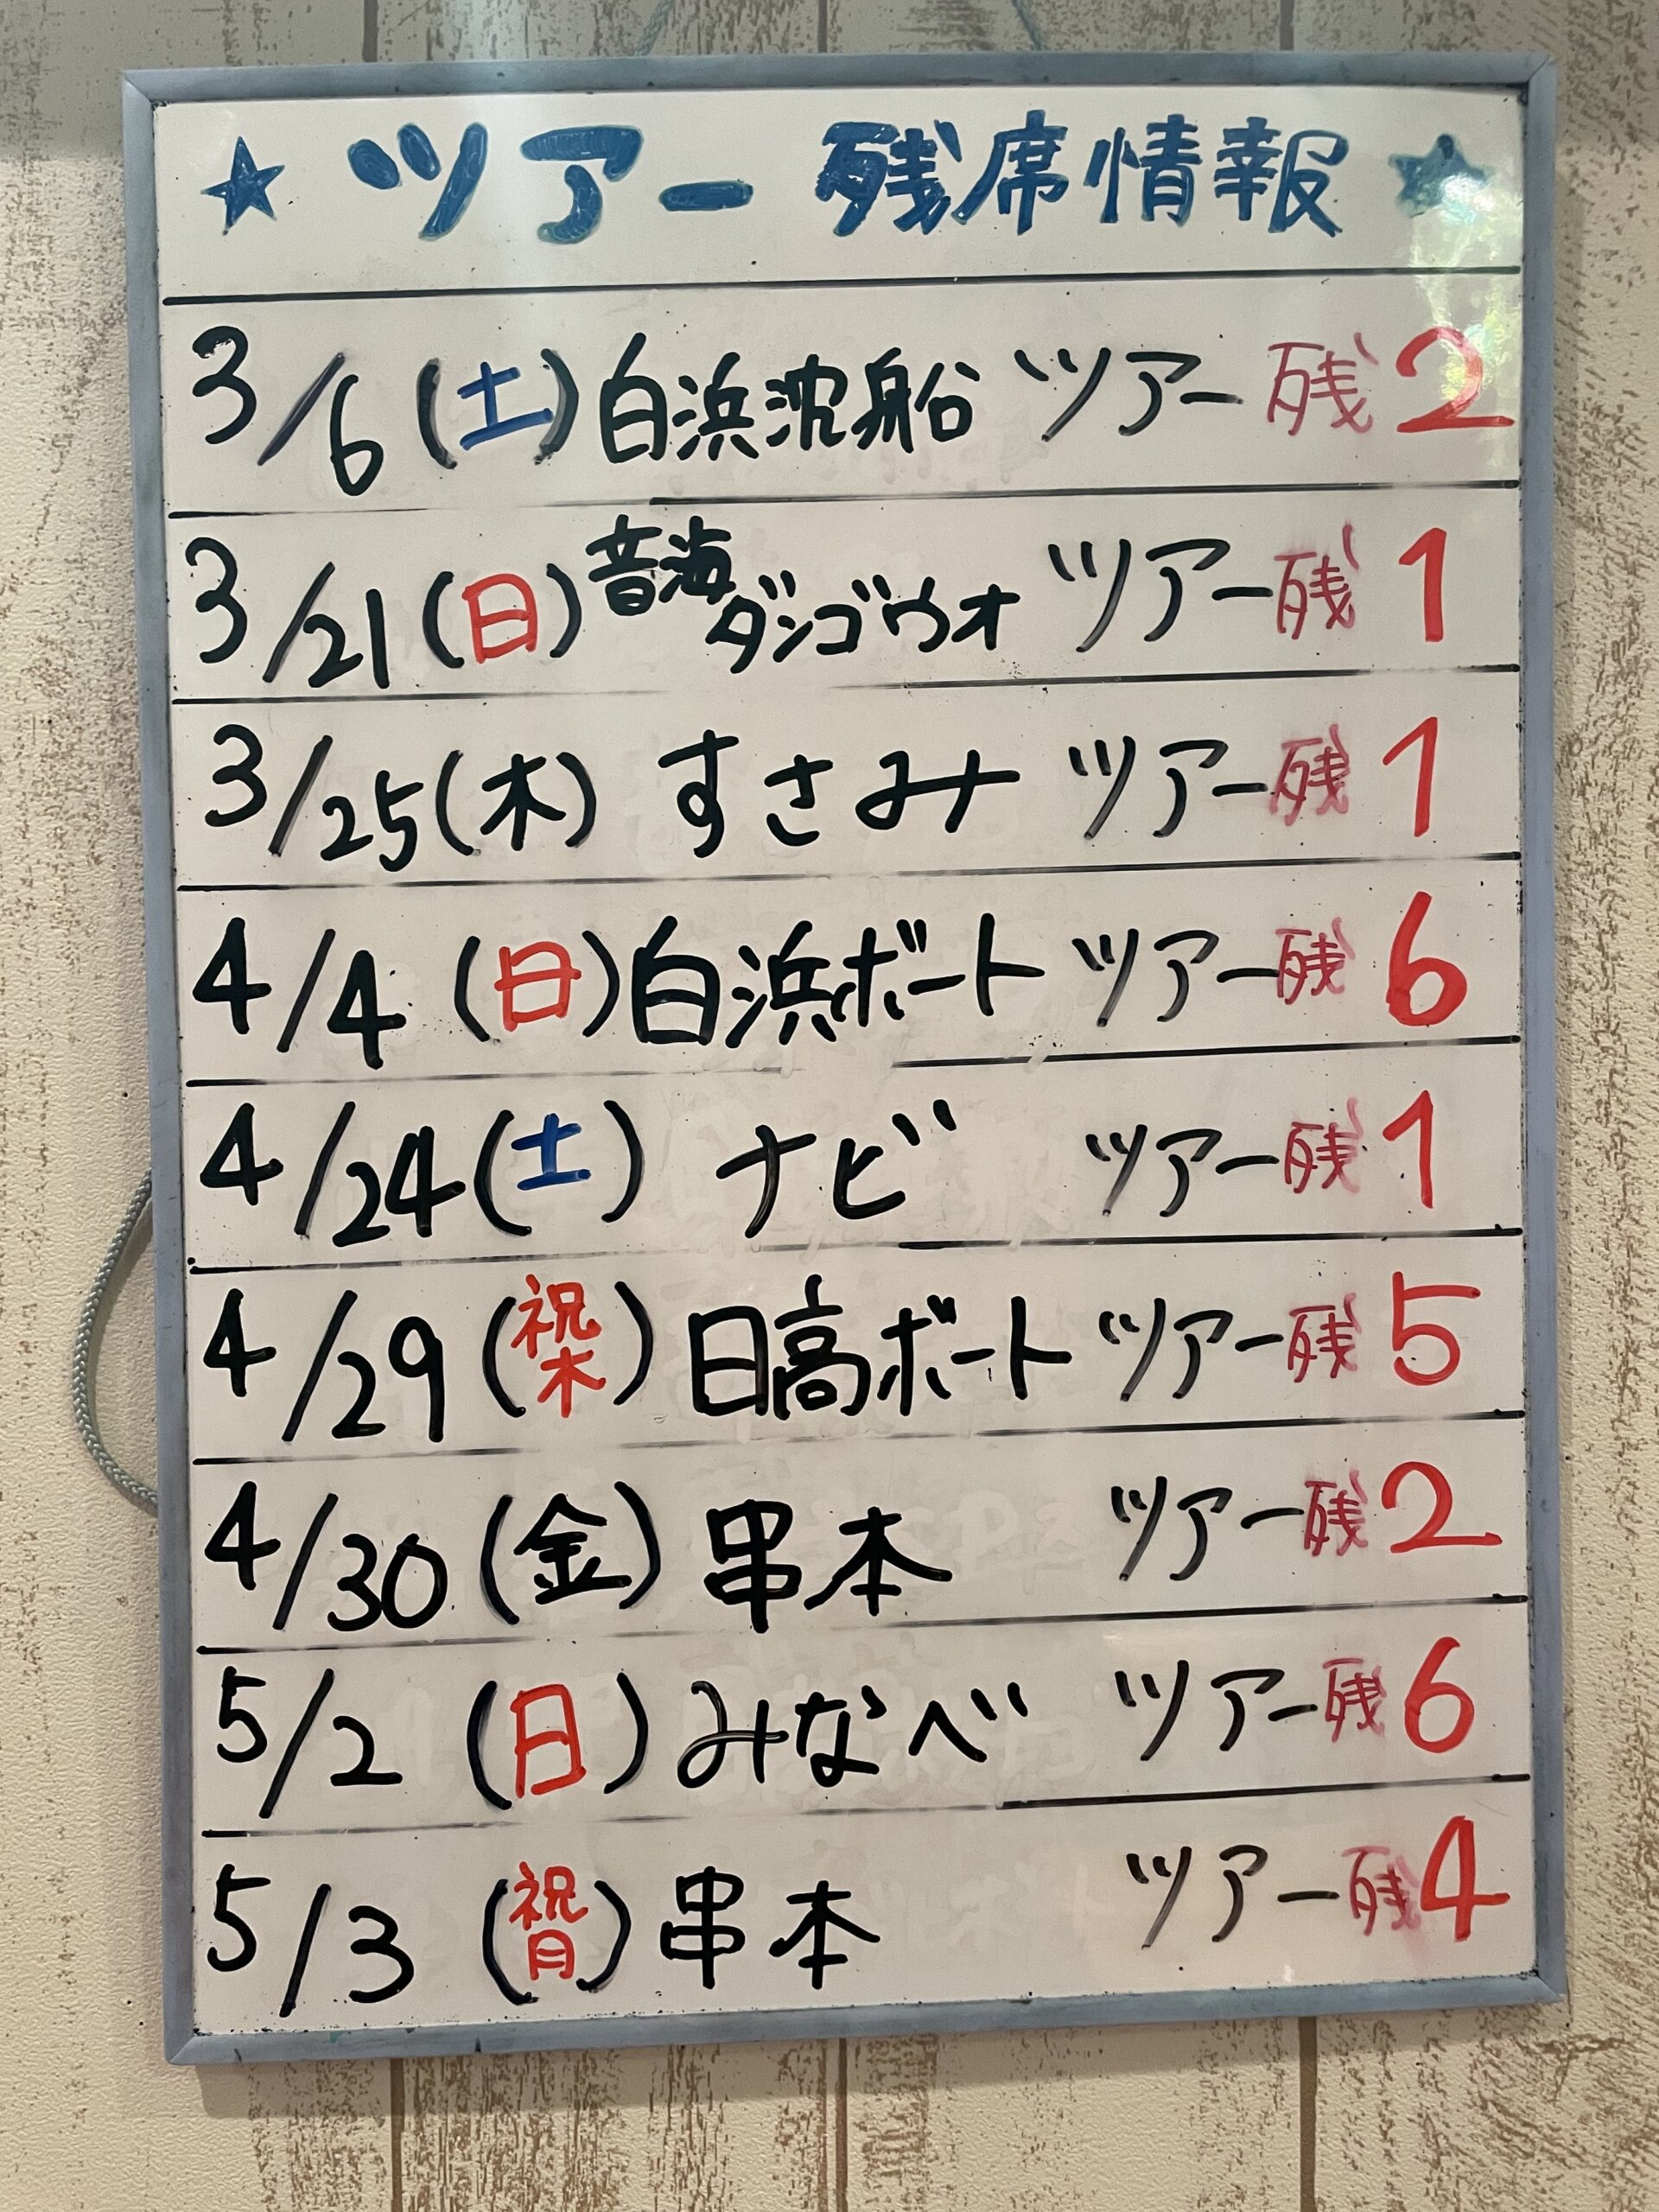 ★ツアー 残席情報★
3/6(土)白浜沈船 ツアー残2
3/21(日)音海ダンゴウオ ツアー残1
3/25(木) すさみ ツアー残1
4/4(日)白浜ボート ツアー残6
4/24(土) ナビ ツアー残1
4/29(祝木)日高ボート ツアー残5
4/30(金)串本 ツアー残2
5/2(日)みなべ ツアー残6
5/3(祝月)串本 ツアー残4